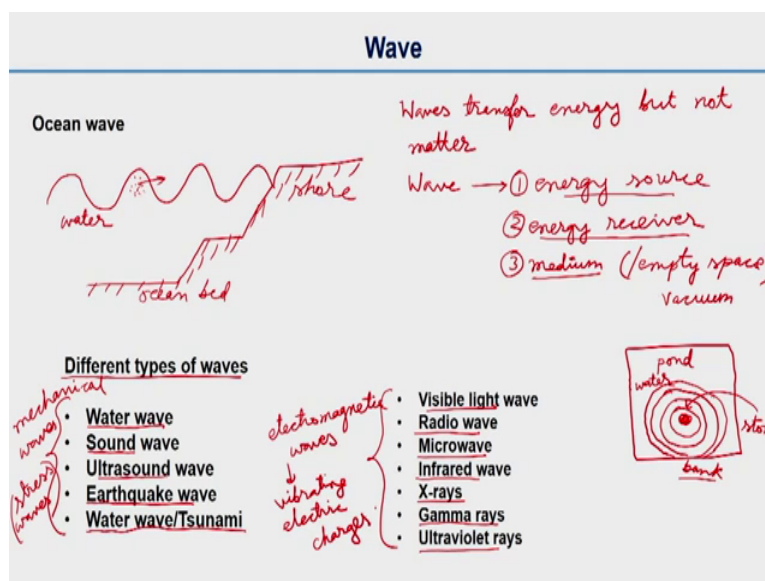 Wave
Ocean wave
Waves transfer energy but not
matter
Wave → ① energy source
② energy receiver
③ medium (/empty space/
vacuum
water
shore
ocean bed
Different types of waves
mechanical
waves
(stress
waves)
• Water wave
• Sound wave
• Ultrasound wave
• Earthquake wave
• Water wave/Tsunami
electromagnetic
waves
↓
vibrating
electric
charges
• Visible light wave
• Radio wave
• Microwave
• Infrared wave
• X-rays
• Gamma rays
• Ultraviolet rays
pond
water
bank